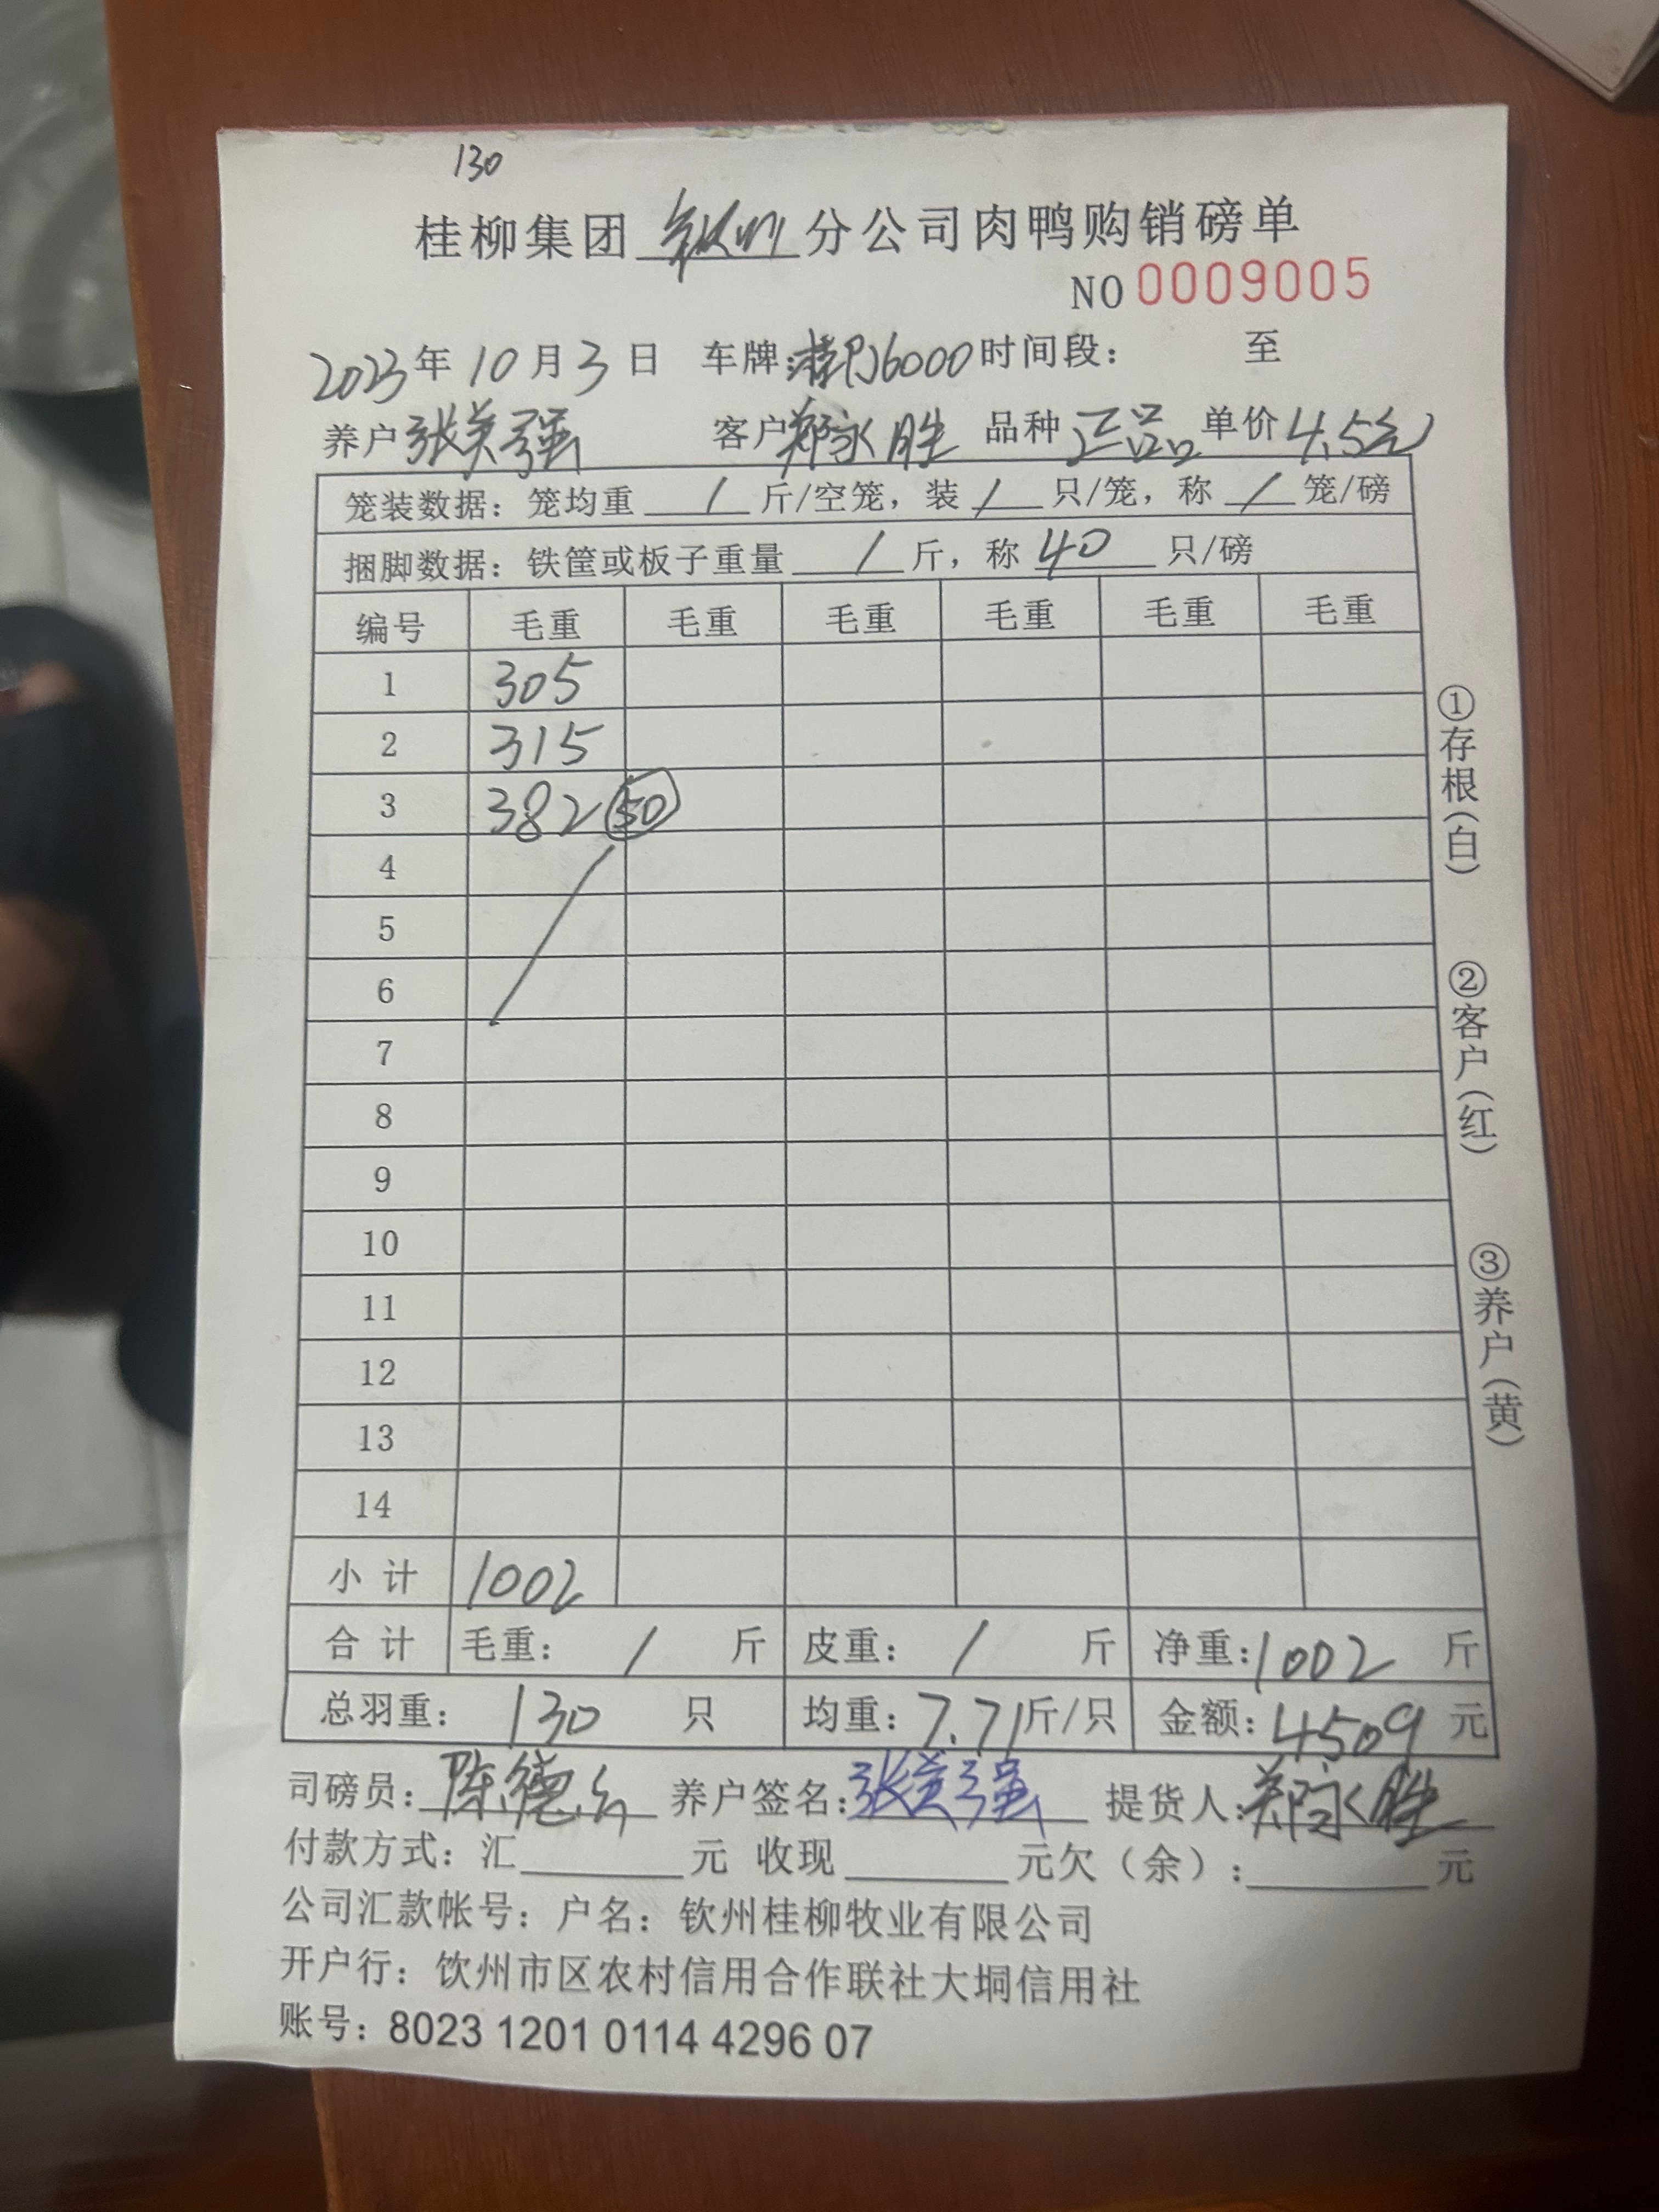 130
桂柳集团 钦州 分公司肉鸭购销磅单
NO 0009005
2023年 10月 3日 车牌: J6000 时间段: 至
养户 张美强 客户 郑永胜 品种 正品 单价 4.5元
笼装数据: 笼均重 / 斤/空笼, 装 / 只/笼, 称 / 笼/磅
捆脚数据: 铁筐或板子重量 / 斤, 称 40 只/磅
编号 毛重 毛重 毛重 毛重 毛重 毛重
1 305
2 315
3 382 50
4
5
6
7
8
9
10
11
12
13
14
小 计 1002
合 计 毛重: / 斤 皮重: / 斤 净重: 1002 斤
总羽重: 130 只 均重: 7.71斤/只 金额: 4509 元
司磅员: 陈德 养户签名: 张美强 提货人: 郑永胜
付款方式: 汇 元 收现 元欠（余）: 元
公司汇款帐号: 户名: 钦州桂柳牧业有限公司
开户行: 饮州市区农村信用合作联社大垌信用社
账号: 8023 1201 0114 4296 07
①存根(白)
②客户(红)
③养户(黄)